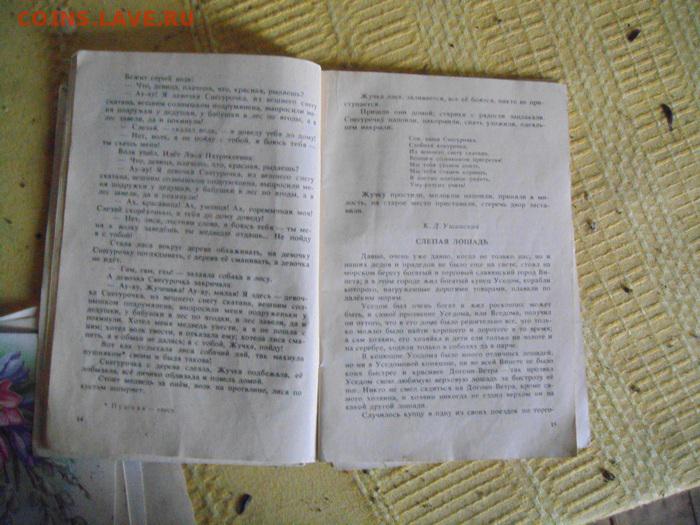 COINS.LAVE.RU
Бежит серый волк:
— Что, девица, плачешь, что, красная, рыдаешь?
— Ау-ау! Я девочка Снегурочка, из вешнего снегу
скатана, вешним солнышком подрумянена, выпросили ме-
ня подружки у дедушки, у бабушки в лес по ягоды, в
лес завели, да и покинули!
— Слезай, — сказал волк, — я доведу тебя до дому!
— Нет, волк, я не пойду с тобой, я боюсь тебя —
ты съешь меня!
Волк ушёл. Идёт Лиса Патрикеевна:
— Что, девица, плачешь, что, красная, рыдаешь?
— Ау-ау! Я девочка Снегурочка, из вешнего снегу
скатана, вешним солнышком подрумянена, выпросили ме-
ня подружки у дедушки, у бабушки в лес по ягоды, в
лес завели, да и покинули!
— Ах, красавица! Ах, умница! Ах, горемычная моя!
Слезай скорёхонько, я тебя до дому доведу!
— Нет, лиса, льстивы слова, я боюся тебя — ты ме-
ня к волку заведёшь, ты медведю отдашь... Не пойду
я с тобой!
Стала лиса вокруг дерева обхаживать, на девочку
Снегурочку поглядывать, с дерева её сманивать, а девочка
не идёт.
— Гам, гам, гам! — залаяла собака в лесу.
А девочка Снегурочка закричала:
— Ау-ау, Жученька! Ау-ау, милая! Я здесь — девоч-
ка Снегурочка, из вешнего снегу скатана, вешним сол-
нышком подрумянена, выпросили меня подруженьки у
дедушки, у бабушки в лес по ягодки, в лес завели, да и
покинули. Хотел меня медведь унести, а я не пошла с
ним; хотел волк увести, я отказала ему; хотела лиса сма-
нить, а я в обман не далась; а с тобой, Жучка, пойду!
Вот как услыхала лиса собачий лай, так махнула
пушняком* своим и была такова!
Снегурочка с дерева слезла, Жучка подбежала, её
лобызала, всё личико облизала и повела домой.
Стоит медведь за пнём, волк на прогалине, лиса по
кустам шныряет.
* Пушняк — хвост.
14
Жучка лает, заливается, все её боятся, никто не при-
ступается.
Пришли они домой; старики с радости заплакали.
Снегурочку напоили, накормили, спать уложили, одеяль-
цем накрыли:
Спи, наша Снегурочка,
Сдобная кокурочка,
Из вешнего снегу скатана,
Вешним солнышком пригретая!
Мы тебя станем поить,
Мы тебя станем кормить,
В цветно платье рядить,
Уму-разуму учить!
Жучку простили, молоком напоили, приняли в ми-
лость, на старое место приставили, стеречь двор заста-
вили.
К. Д. Ушинский
СЛЕПАЯ ЛОШАДЬ
Давно, очень уже давно, когда не только нас, но и
наших дедов и прадедов не было ещё на свете, стоял на
морском берегу богатый и торговый славянский город Ви-
нета; а в этом городе жил богатый купец Уседом, корабли
которого, нагруженные дорогими товарами, плавали по
далёким морям.
Уседом был очень богат и жил роскошно: может
быть, и самоё прозвание Уседома, или Вседома, получил
он оттого, что в его доме было решительно всё, что толь-
ко можно было найти хорошего и дорогого в то время;
а сам хозяин, его хозяйка и дети ели только на золоте и
на серебре, ходили только в соболях да в парче.
В конюшне Уседома было много отличных лошадей,
но ни в Уседомовой конюшне, ни во всей Винете не было
коня быстрее и красивее Догони-Ветра — так прозвал
Уседом свою любимую верховую лошадь за быстроту её
ног. Никто не смел садиться на Догони-Ветра, кроме са-
мого хозяина, и хозяин никогда не ездил верхом ни на
какой другой лошади.
Случилось купцу в одну из своих поездок по торго-
15